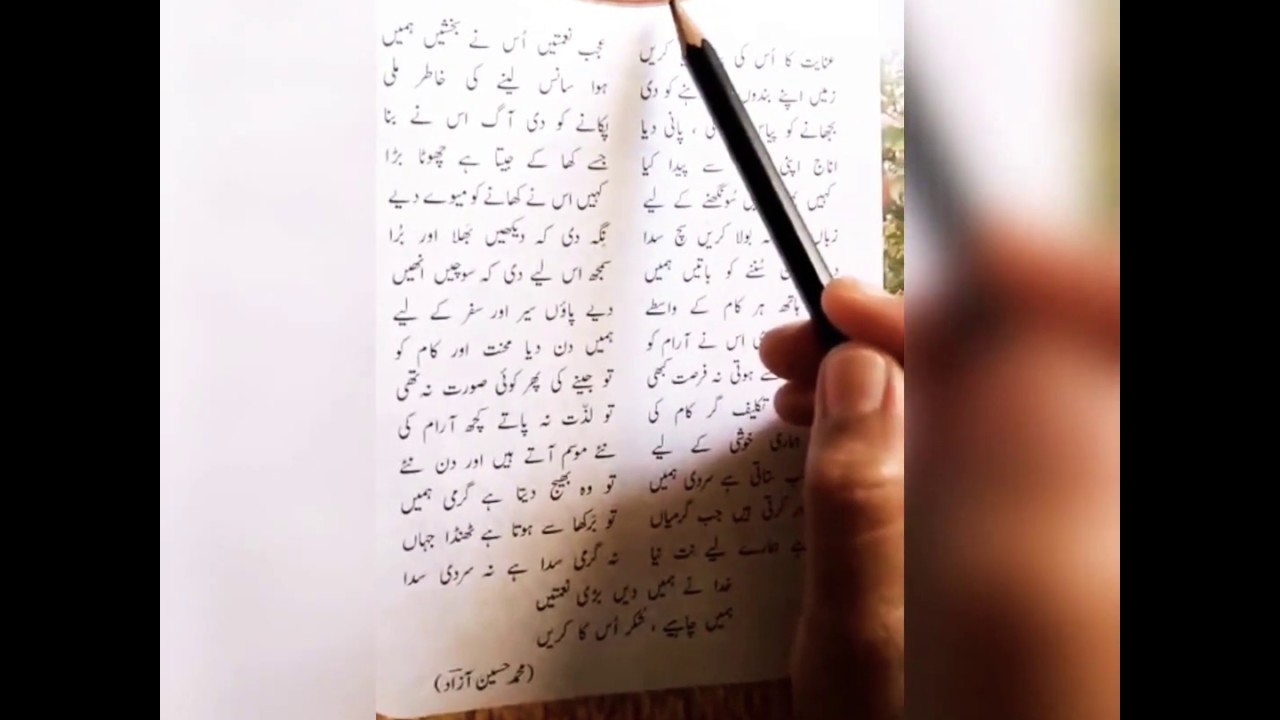 عنایت کا اُس کی کریں عجب نعمتیں اُس نے بخشیں ہمیں
زمیں اپنے بندوں کو دی ہوا سانس لینے کی خاطر ملی
بجھانے کو پیاس ، پانی دیا پکانے کو دی آگ اس نے بنا
اناج اپنی سے پیدا کیا جسے کھا کے جیتا ہے چھوٹا بڑا
کہیں سُونگھنے کے لیے کہیں اس نے کھانے کو میوے دیے
زباں بولا کریں سچ سدا نِگہ دی کہ دیکھیں بھلا اور بُرا
سُننے کو باتیں ہمیں سمجھ اس لیے دی کہ سوچیں انھیں
ہاتھ ہر کام کے واسطے دیے پاؤں سیر اور سفر کے لیے
اس نے آرام کو ہمیں دن دیا محنت اور کام کو
ہوتی نہ فرصت کبھی تو جینے کی پھر کوئی صورت نہ تھی
تکلیف گر کام کی تو لذّت نہ پاتے کچھ آرام کی
ہماری خوشی کے لیے نئے موسم آتے ہیں اور دن نئے
ستاتی ہے سردی ہمیں تو وہ بھیج دیتا ہے گرمی ہمیں
کرتی ہیں جب گرمیاں تو بَرکھا سے ہوتا ہے ٹھنڈا جہاں
ہمارے لیے نت نیا نہ گرمی سدا ہے نہ سردی سدا
خدا نے ہمیں دیں بڑی نعمتیں
ہمیں چاہیے ، شکر اُس کا کریں
(محمد حسین آزاد)